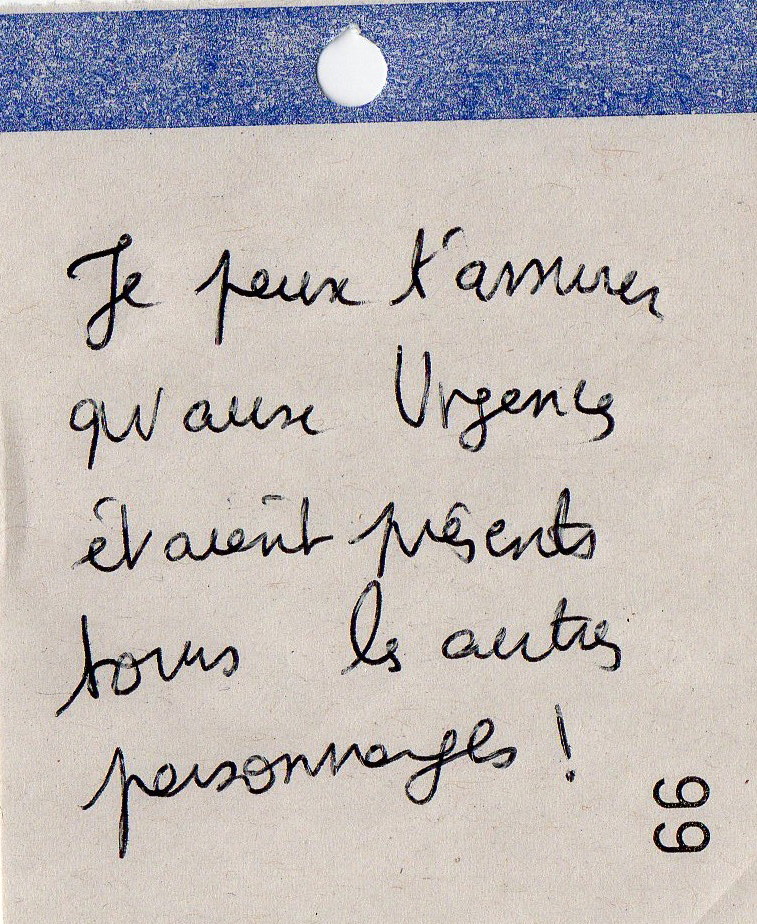 Je peux t'assurer
qu'aux Urgences
étaient présents
tous les autres
personnages !
99